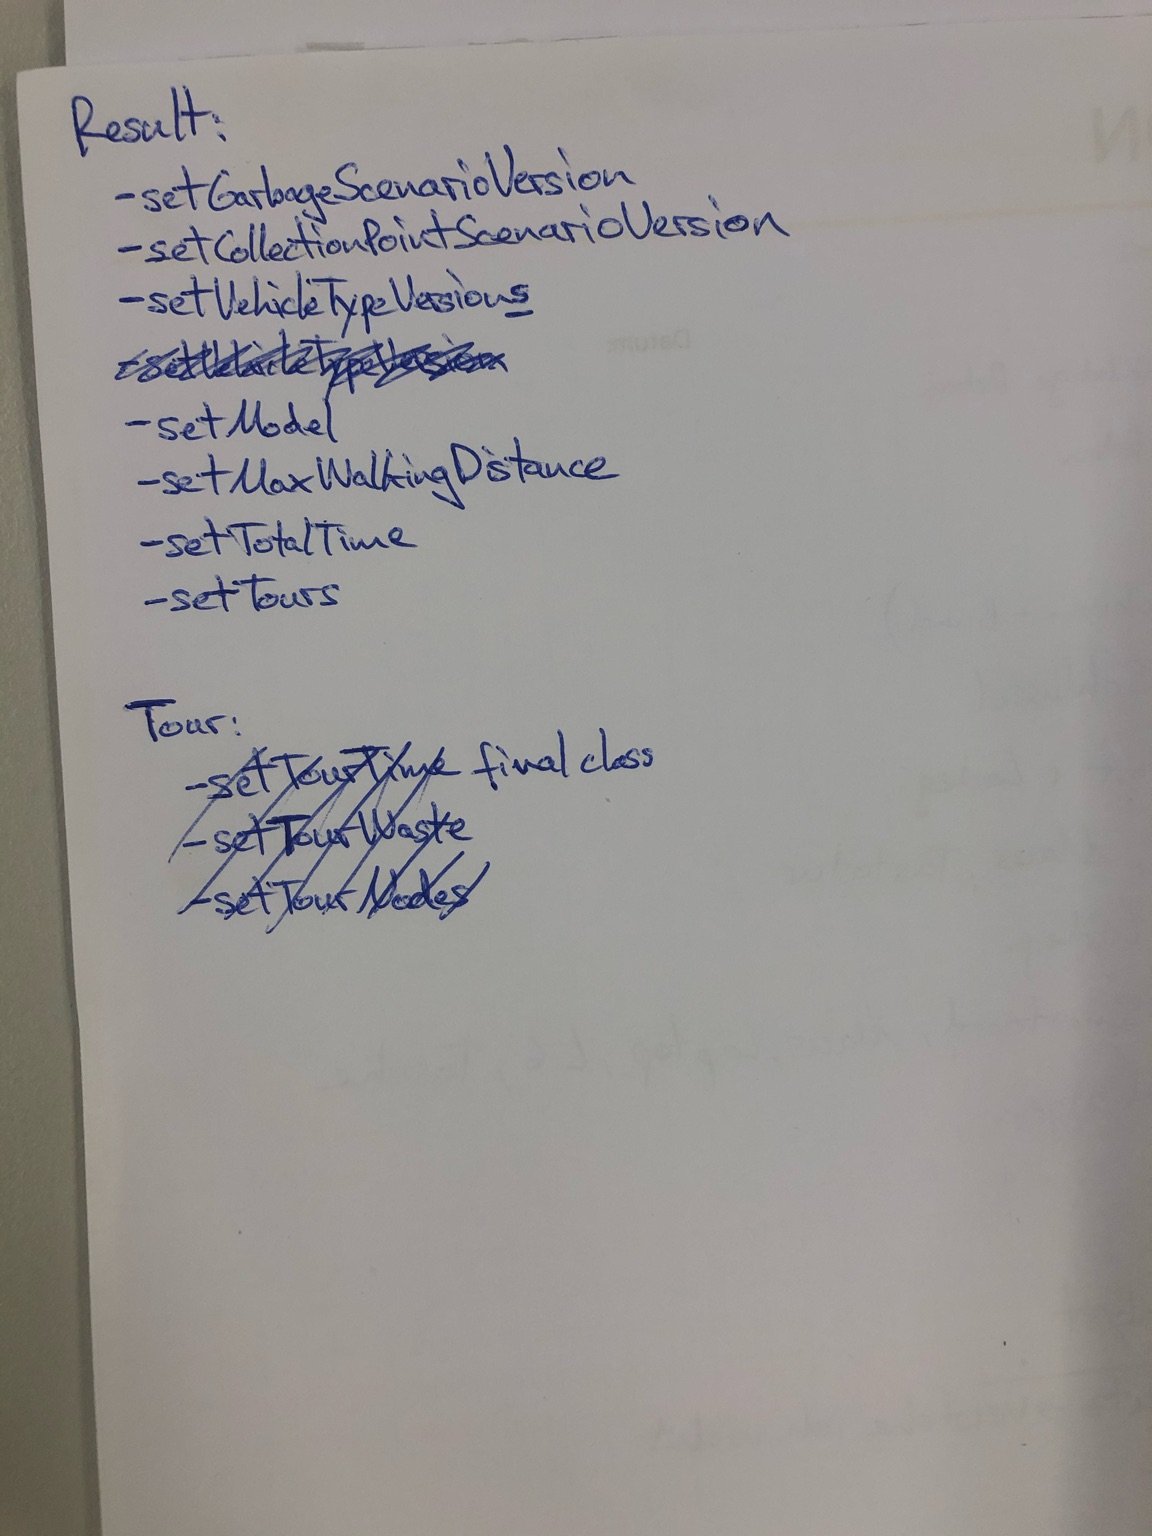 Result:
-setGarbageScenarioVersion
-setCollectionPointScenarioVersion
-setVehicleTypeVersions
-setVehicleTypeVersion
-setModel
-setMaxWalkingDistance
-setTotalTime
-setTours
Tour:
-setTourTime final class
-setTourWaste
-setTourNodes